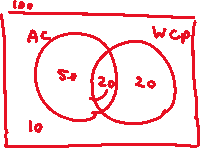 100
AC WCP
50 20 20
10